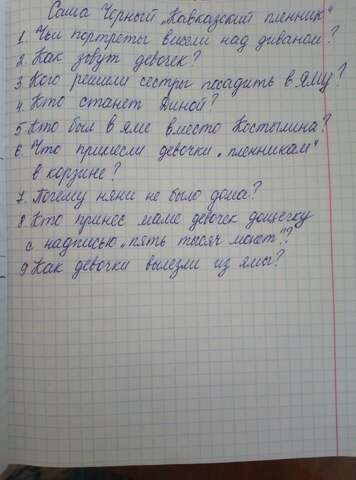 Саша Черный „Кавказский пленник"
1. Чьи портреты висели над диваном?
2. Как зовут девочек?
3. Кого решили сестры посадить в яму?
4. Кто станет Диной?
5. Кто был в яме вместо Костылина?
6. Что принесли девочки „пленникам"
в корзине?
7. Почему няни не было дома?
8. Кто принес маме девочек дощечку
с надписью „пять тысяч моют"?
9. Как девочки вылезли из ямы?